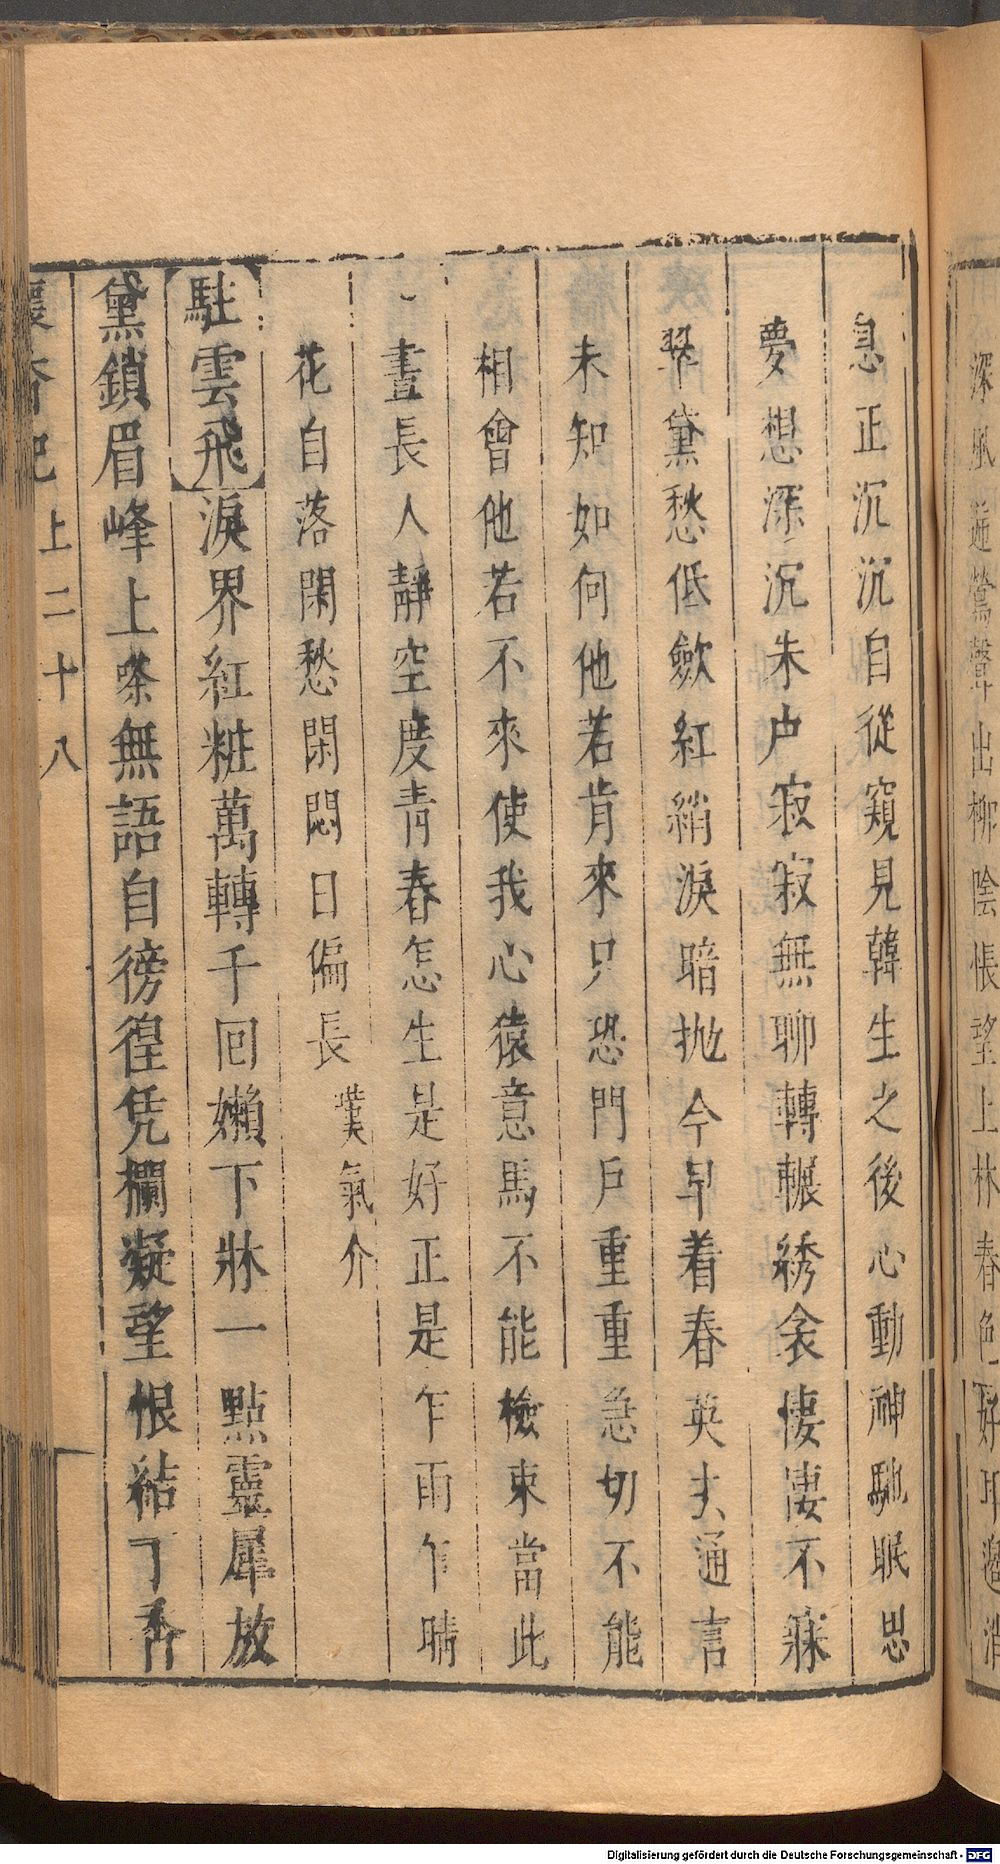 深風遞鶯聲出柳陰悵望上林春色好耳邊消
息正沉沉自從窺見韓生之後心動神馳眠思
夢想深沉朱户寂寂無聊轉輾綉衾悽凄不寐
翠黛愁低斂紅綃淚暗抛今早着春英去通言
未知如何他若肯來只恐門戶重重急切不能
相會他若不來使我心猿意馬不能檢束當此
晝長人靜空度青春怎生是好正是乍雨乍晴
花自落閑愁閑悶日偏長 嘆氣介
駐雲飛淚界紅粧萬轉千回嬾下牀一點靈犀放
黛鎖眉峰上嗏無語自徬徨凭欄凝望恨結丁香
懷香記 上二十八
Digitalisierung gefördert durch die Deutsche Forschungsgemeinschaft - DFG